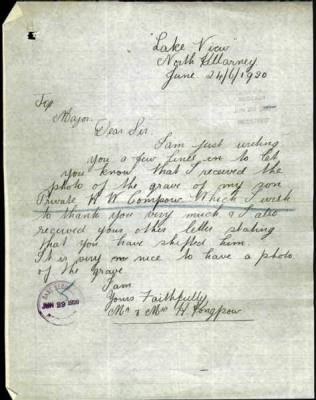 "Lake View"
North Killarney
June 24/6/1920
To
Major.
Dear Sir.
I am just writing
you a few lines in to let
you know that I received the
photo of the grave of my son
Private H W Compow. Which I wish
to thank you very much & I also
received your other letter stating
that you have shifted him.
It is very nice to have a photo
of the grave
I am
Yours Faithfully
Mr & Mrs H
JUN 29 1920